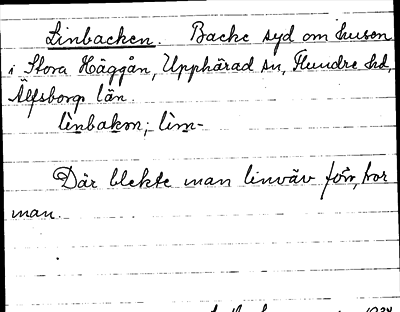 Linbacken. Backe syd om husen
i Stora Häggån, Upphärad sn, Flundre hd,
Älfsborgs län.
linbakɒn; lin-
Där blekte man linväv förr, tror
man.